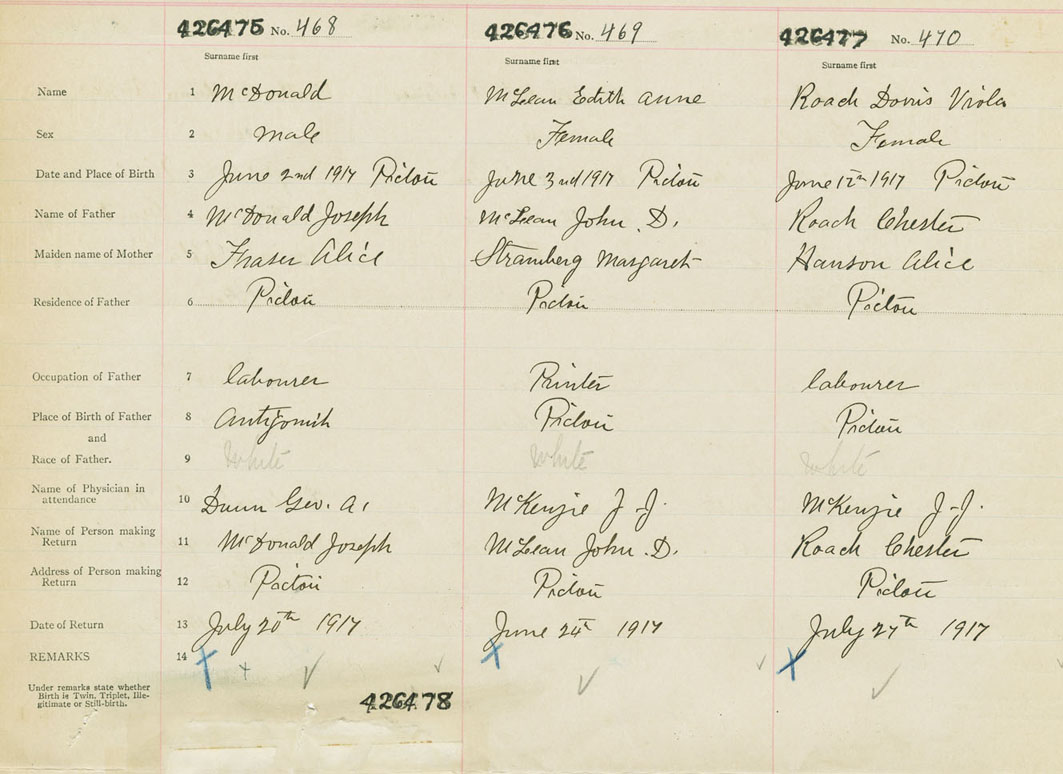 426475 No. 468 426476 No. 469 426477 No. 470
Surname first Surname first Surname first
Name 1 McDonald McLean Edith Anne Roach Doris Viola
Sex 2 male Female Female
Date and Place of Birth 3 June 2nd 1917 Pictou June 3rd 1917 Pictou June 12th 1917 Pictou
Name of Father 4 McDonald Joseph McLean John D. Roach Chester
Maiden name of Mother 5 Fraser Alice Stramberg Margaret Hanson Alice
Residence of Father 6 Pictou Pictou Pictou
Occupation of Father 7 labourer Printer labourer
Place of Birth of Father 8 Antigonish Pictou Pictou
and
Race of Father. 9 White White White
Name of Physician in
attendance 10 Dunn Geo. A. McKenzie J. J. McKenzie J. J.
Name of Person making
Return 11 McDonald Joseph McLean John D. Roach Chester
Address of Person making
Return 12 Pictou Pictou Pictou
Date of Return 13 July 20th 1917 June 24th 1917 July 27th 1917
REMARKS 14
Under remarks state whether
Birth is Twin, Triplet, Ille-
gitimate or Still-birth.
426478